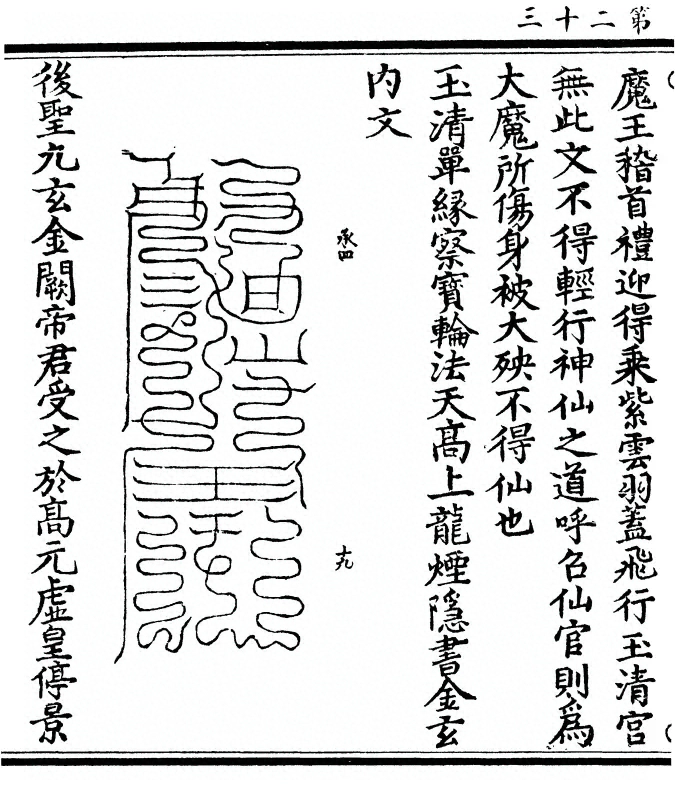 第二十三
魔王稽首禮迎得乘紫雲羽蓋飛行玉清宮
無此文不得輕行神仙之道呼召仙官則為
大魔所傷身被大殃不得仙也
玉清單緣察寶輪法天高上龍煙隱書金玄
內文
承四
十九
後聖九玄金闕帝君受之於高元虛皇停景